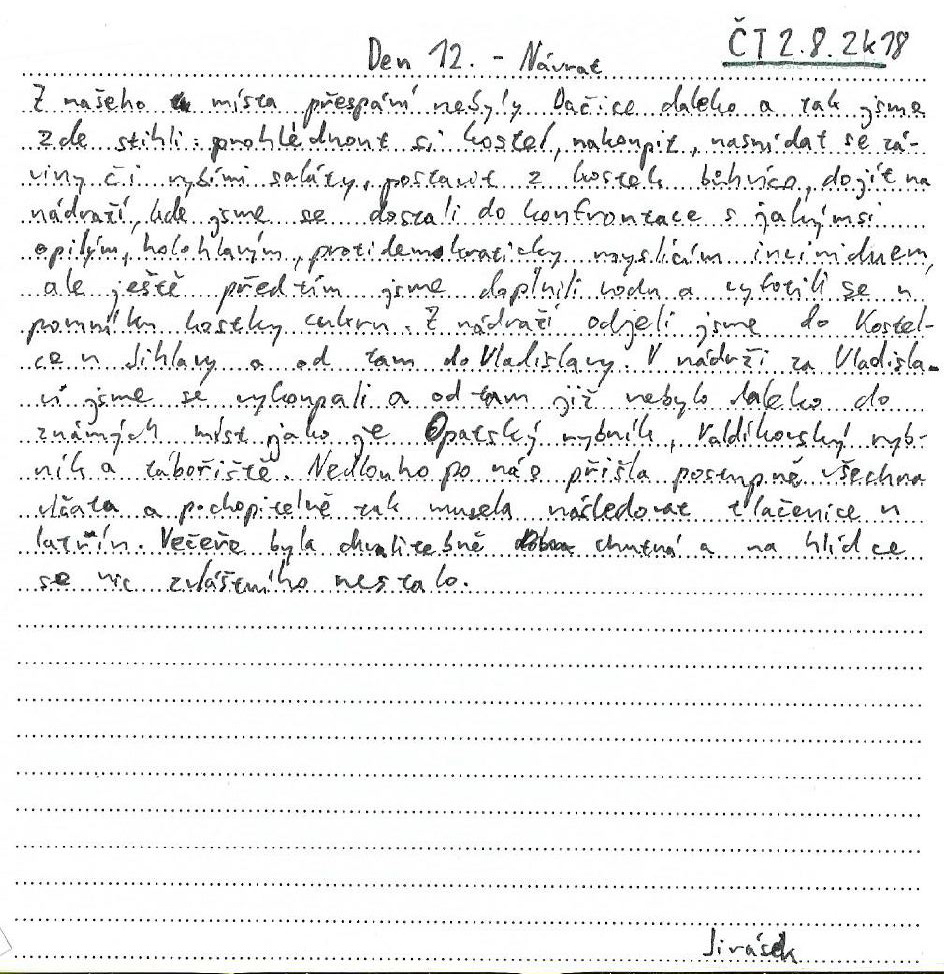 ČT 2.8.2k18
Den 12. - Návrat
Z našeho místa přespání nebyly Dačice daleko a tak jsme
zde stihli: prohlédnout si kostel, nakoupit, nasnídat se zá-
viny či rybími saláty, postavit z kostek bůhvíco, dojít na
nádraží, kde jsme se dostali do konfrontace s jakýmsi
opilým, holohlavým, protidemokraticky myslícím incimiduem,
ale ještě předtím jsme doplnili vodu a vyfotili se u
pomníku kostky cukru. Z nádraží odjeli jsme do Kostel-
ce u Jihlavy a od tam do Vladislavy. V nádrži za Vladisla-
ví jsme se vykoupali a od tam již nebylo daleko do
známých míst jako je Opatský rybník, Valdíkovský ryb-
ník a tábořiště. Nedlouho po nás přišla postupně všechna
vlčata a pochopitelně tak musela následovat tlačenice u
latrín. Večeře byla chvalitebně chutná a na hlídce
se nic zvláštního nestalo.
Jirásek